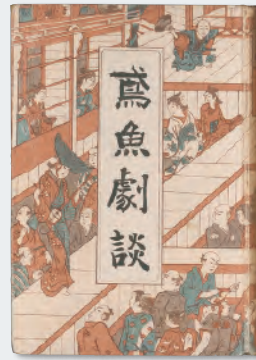 鳶魚劇談